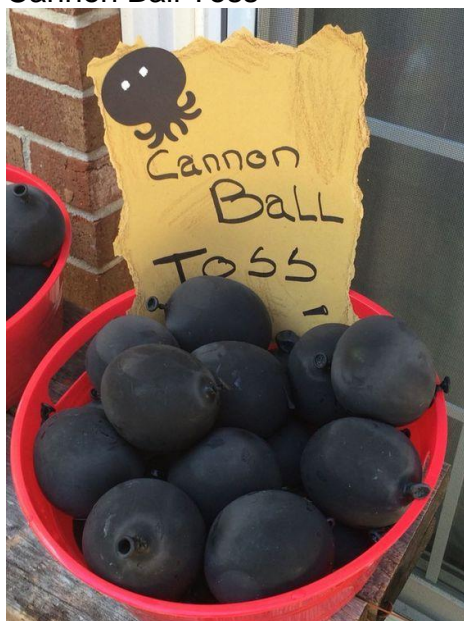 Cannon Ball Toss
Cannon
BaLL
Toss